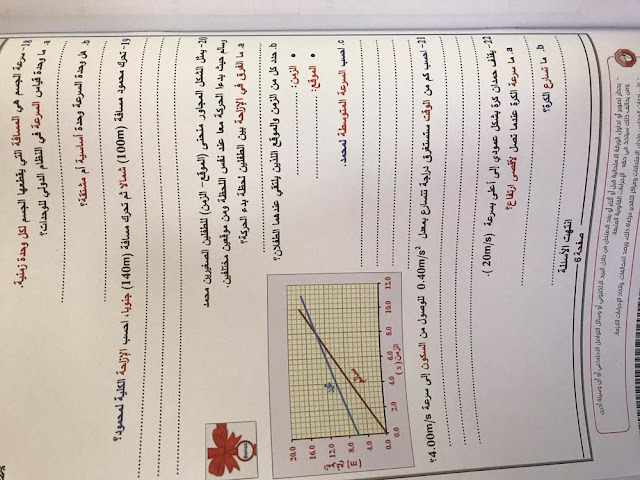 18- سرعة الجسم هي المسافة التي يقطعها الجسم لكل وحدة زمنية.
a. ما وحدة قياس السرعة في النظام الدولي للوحدات؟
b. هل وحدة السرعة وحدة أساسية أم مشتقة؟
19- تحرك محمود مسافة (100m) شمالا ثم تحرك مسافة (140m) جنوبا، احسب الإزاحة الكلية لمحمود؟
20- يمثل الشكل المجاور منحنى (الموقع - الزمن) للطفلين الصغيرين محمد
وسلم حيث بدءا الحركة معا عند نفس اللحظة ومن موقعين مختلفين.
a. ما الفرق في الإزاحة بين الطفلين لحظة بدء الحركة؟
b. حدد كل من الزمن والموقع اللذين يلتقي عندهما الطفلان؟
• الزمن:
• الموقع:
20.0
16.0
12.0
8.0
4.0
0.0
0.0 2.0 4.0 6.0 8.0 10.0 12.0
الزمن (s)
c. احسب السرعة المتوسطة لمحمد.
21- احسب كم من الوقت ستستغرق دراجة تتسارع بمعدل 0.40m/s² للوصول من السكون إلى سرعة 4.00m/s؟
22- يقف حمدان كرة بشكل عمودي إلى أعلى بسرعة (20m/s).
a. ما سرعة الكرة عندما تصل لأقصى ارتفاع؟
b. ما تسارع الكرة؟
انتهت الأسئلة
صفحة 6